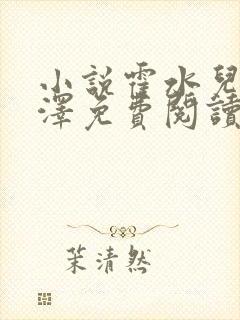 小說霍水兒
澤免費閱讀
茉清然